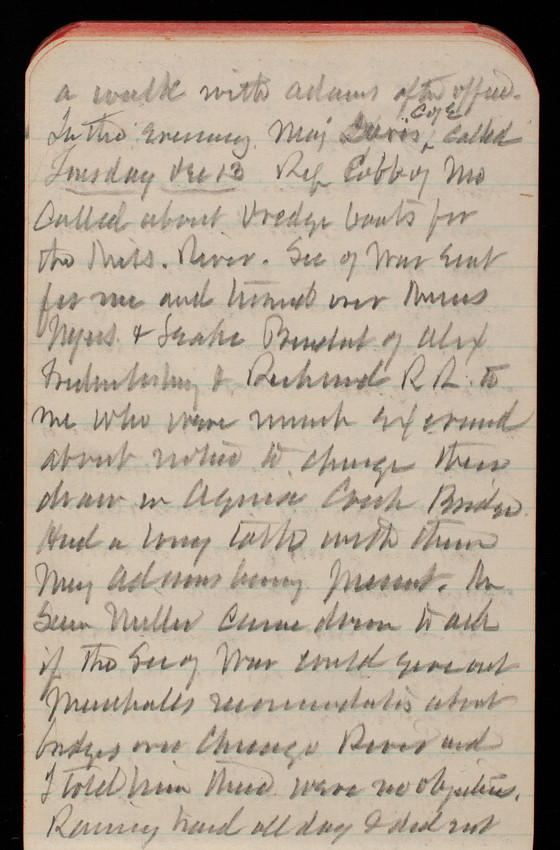 a walk with Adams after office.
C of E
In the evening Maj Davis, called
Tuesday Dec 13 Rep Cobb of Mo
Called about dredge boats for
the Miss. River. Sec of War sent
for me and turned over
Myers & Leake President of Alex
Fredericksburg & Richmond R R. to
me who were much exercised
about notice to change their
draw in Aquia Creek Bridge.
Had a long talk with them
Maj Adams being present.
Miller came down to ask
if the Sec of War could give out
Marshalls recommendations about
bridges over Chicago River and
I told him there were no objections.
Raining hard all day & did not